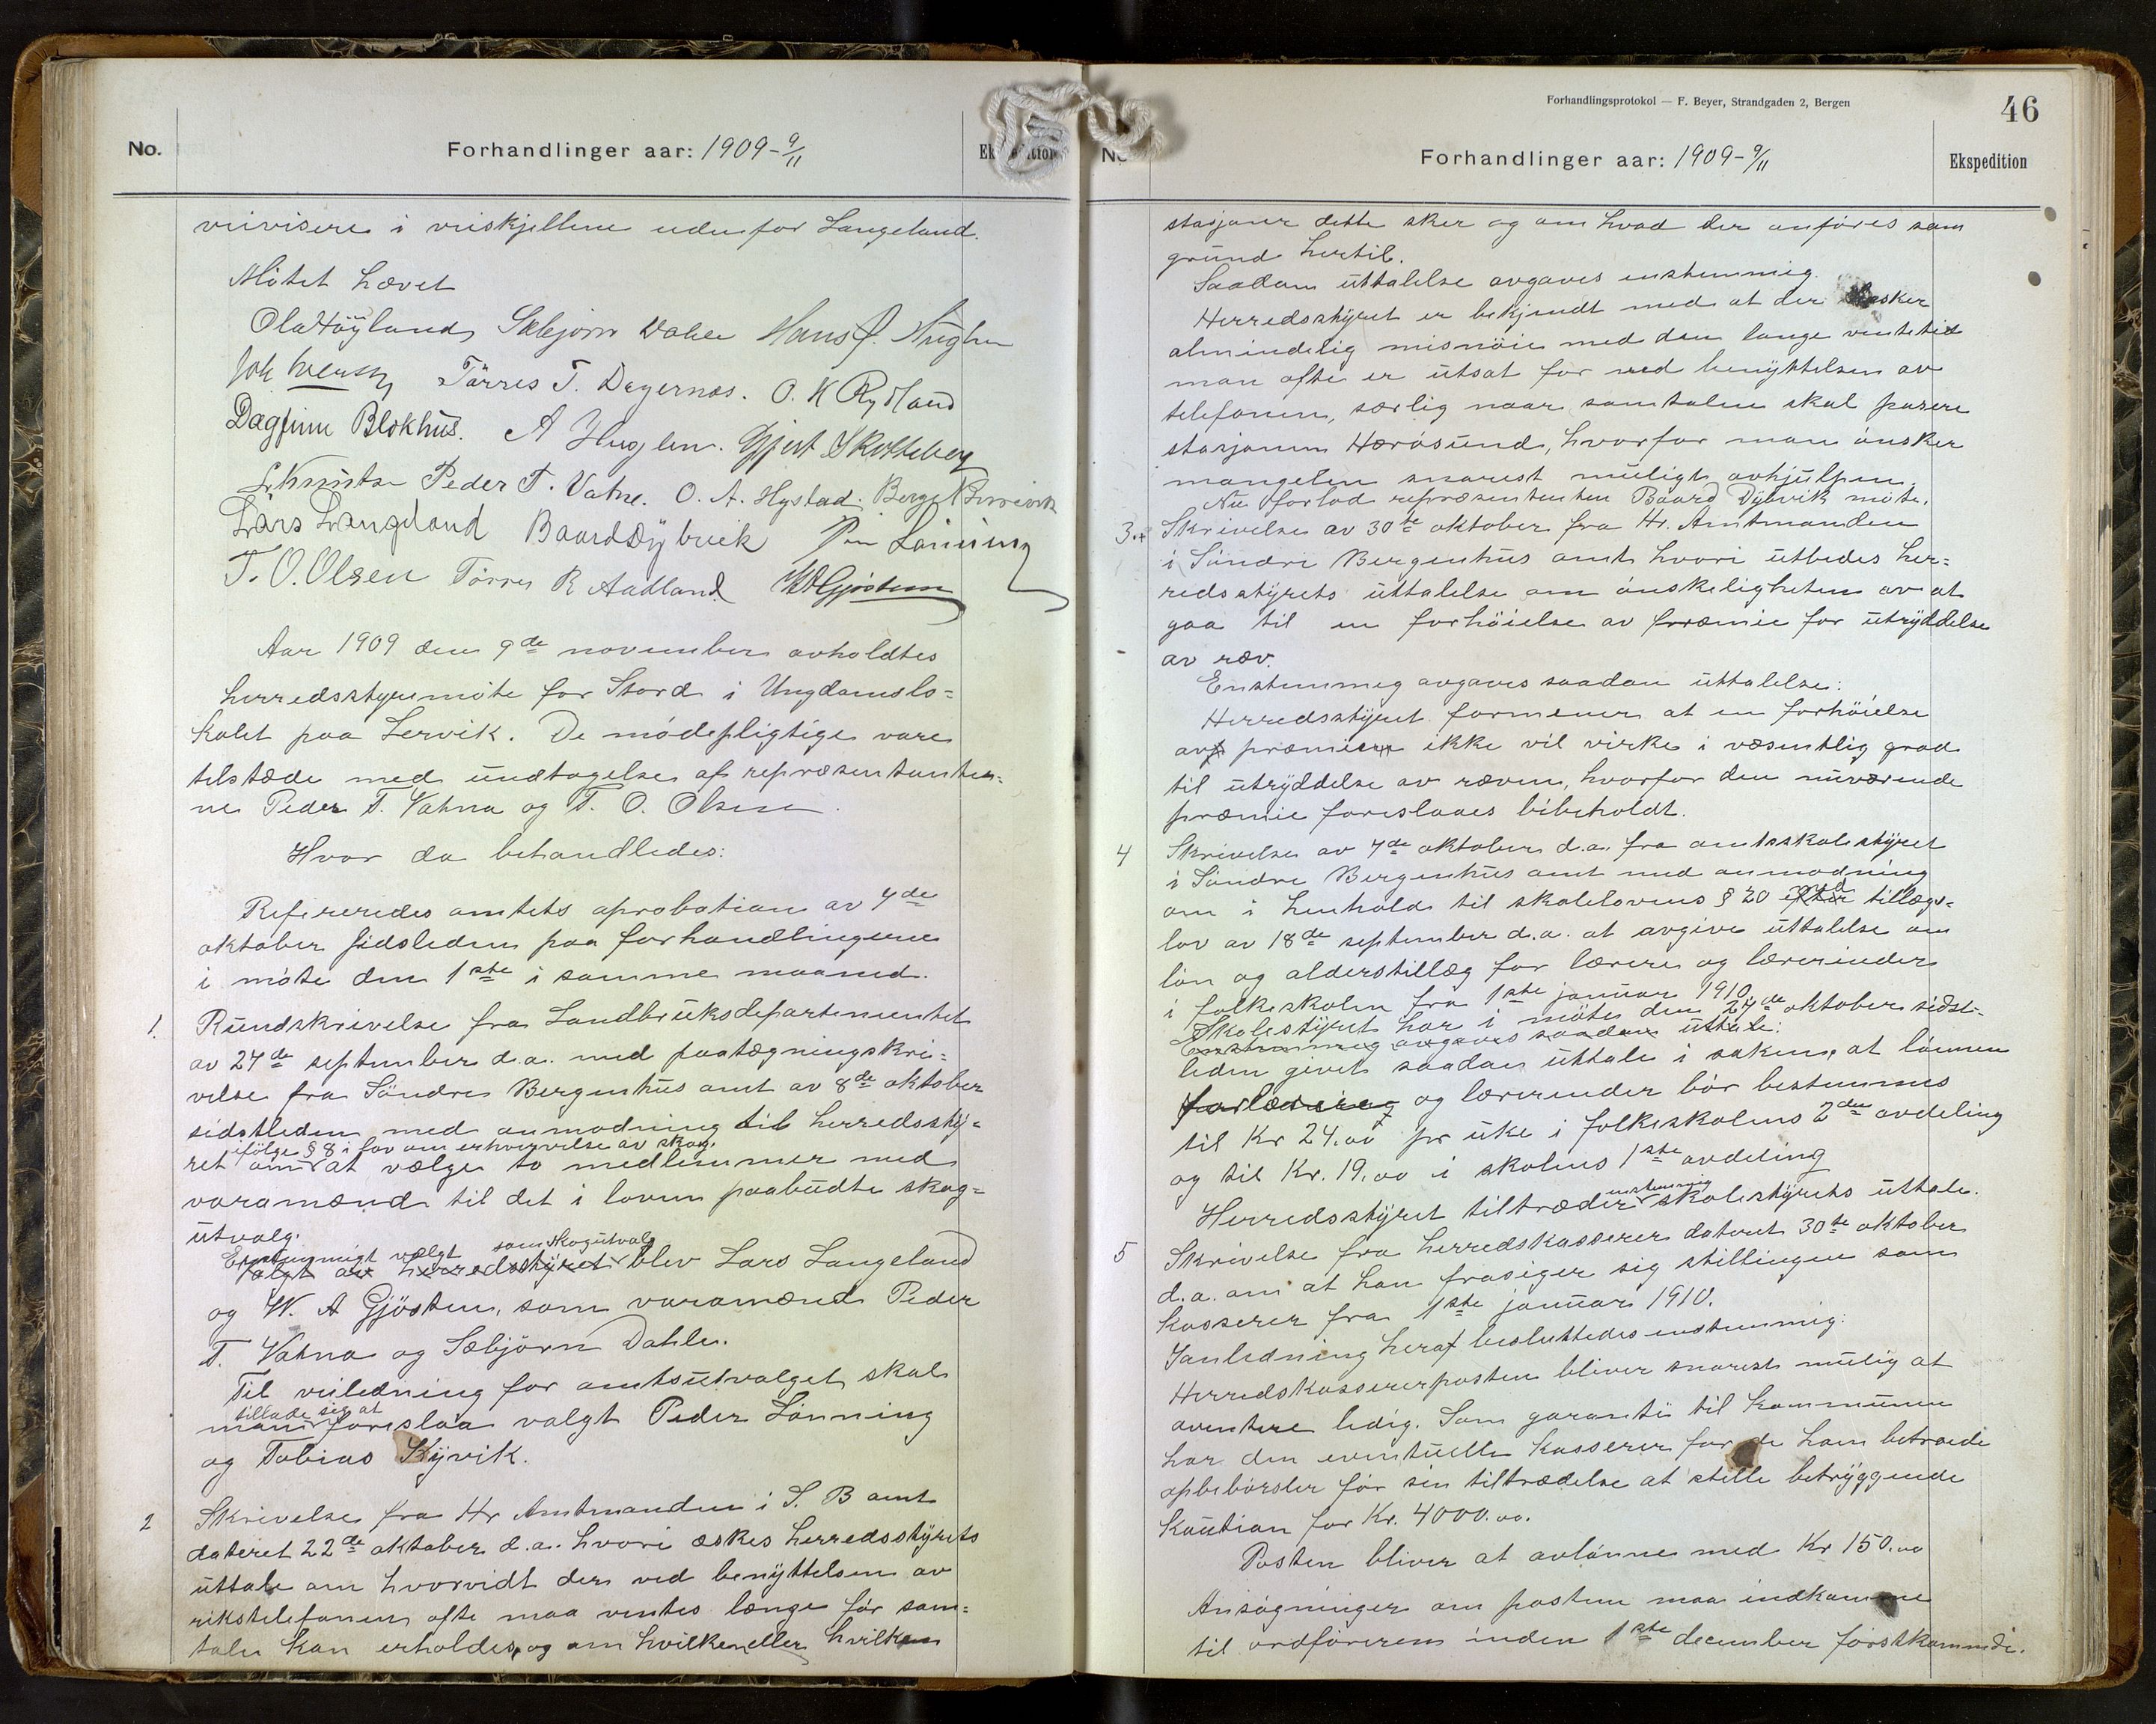 No.
Forhandlinger aar: 1909-9/11
veivisere i veiskjellene udenfor Langeland.
Mötet hævet
Ola Höyland Sæbjörn Dahle Hans J. Huglen
Joh Iversen Törres T. Dagernæs. O. K Rydland
Dagfinn Blokhus. A Huglen. Gjert Skotteberg
L Knutsen Peder T. Vatne. O. A. Hystad.
Lars Langeland Baard Dybvik Lönning
T. O. Olsen Törres R Aadland. W A Gjösteen
Aar 1909 den 9de november avholdtes
herredsstyremöte for Stord i Ungdomslo=
kalet paa Lervik. De mödepligtige vare
tilstæde med undtagelse af repræsentanter=
ne Peder T. Vatna og T. O. Olsen.
Hvor da behandledes:
Refereredes amtets aprobation av 7de
oktober sidsleden paa forhandlingerne
i möte den 1ste i samme maaned.
1. Rundskrivelse fra Landbruksdepartementet
av 24de september d.a. med paategningskri=
velse fra Söndre Bergenhus amt av 8de oktober
sidstleden med anmodning til herredssty=
ifölge § 8 i lov om erhvervelse av skog.
ret om at vælge to medlemmer med
varamænd til det i loven paabudte skog=
utvalg.
Enstemmigt valgt som skogutvalg
Valgt av herredsstyret blev Lars Langeland
og W. A Gjösteen, som varamænd Peder
T. Vatna og Sæbjörn Dahle.
Til veiledning for amtsutvalget skal
tillade sig at
man foreslaa valgt Peder Lönning
og Tobias Kyvik.
2 Skrivelse fra Hr Amtmanden i S. B amt
dateret 22de oktober d.a. hvori æskes herredsstyrets
uttale om hvorvidt der ved benyttelsen av
rikstelefonen ofte maa ventes længe för sam=
tale kan erholdes, og om hvilken eller hvilken
Forhandlingsprotokol — F. Beyer, Strandgaden 2, Bergen
46
Forhandlinger aar: 1909-9/11
Ekspedition
stasjoner dette sker og om hvad der anföres som
grund hertil.
Saadan uttalelse avgaves enstemmig.
Herredsstyret er bekjendt med at der hersker
almindelig misnöie med den lange ventetid
man ofte er utsat for ved benyttelsen av
telefonen, særlig naar samtalen skal passere
stasjonen Hærösund, hvorfor man önsker
mangelen snarest muligt avhjulpen.
Nu forlod repræsentanten Baard Dybvik möte.
3. Skrivelse av 30te oktober fra Hr. Amtmanden
i Söndre Bergenhus amt hvori utbedes her=
redsstyrets uttalelse om önskeligheten av at
gaa til en forhöielse av præmie for utryddelse
av ræv.
Enstemmig avgaves saadan uttalelse:
Herredsstyret formener at en forhöielse
av præmien ikke vil virke i væsentlig grad
til utryddelse av ræven, hvorfor den nuværende
præmie foreslaaes bibeholdt.
4 Skrivelse av 7de oktober d.a. fra amtsskolestyret
i Söndre Bergenhus amt med anmodning
om i henhold til skolelovens § 20 efter med tillægs=
lov av 18de september d.a. at avgive uttalelse om
lön og alderstillæg for lærere og lærerinder
i folkeskolen fra 1ste januar 1910.
Skolestyret har i möte den 27de oktober sidst-
Enstemmig avgaves saadan uttale:
leden givet saadan uttale i saken, at lönnen
for lærere og lærerinder bör bestemmes
til Kr 24.00 pr uke i folkeskolens 2den avdeling
og til Kr. 19.00 i skolens 1ste avdeling
enstemmig
Herredsstyret tiltræder skolestyrets uttale.
5 Skrivelse fra herredskasserer dateret 30te oktober
d.a. om at han frasiger sig stillingen som
kasserer fra 1ste januar 1910.
Ianledning heraf besluttedes enstemmig:
Herredskassererposten bliver snarest mulig at
avertere ledig. Som garanti til kommunen
har den eventuelle kasserer for de ham betroede
opbebörsler för sin tiltrædelse at stille betryggende
kaution for Kr. 4000.00.
Posten bliver at avlönne med Kr 150.00
Ansögninger om posten maa indkomme
til ordföreren inden 1ste december förstkommende.